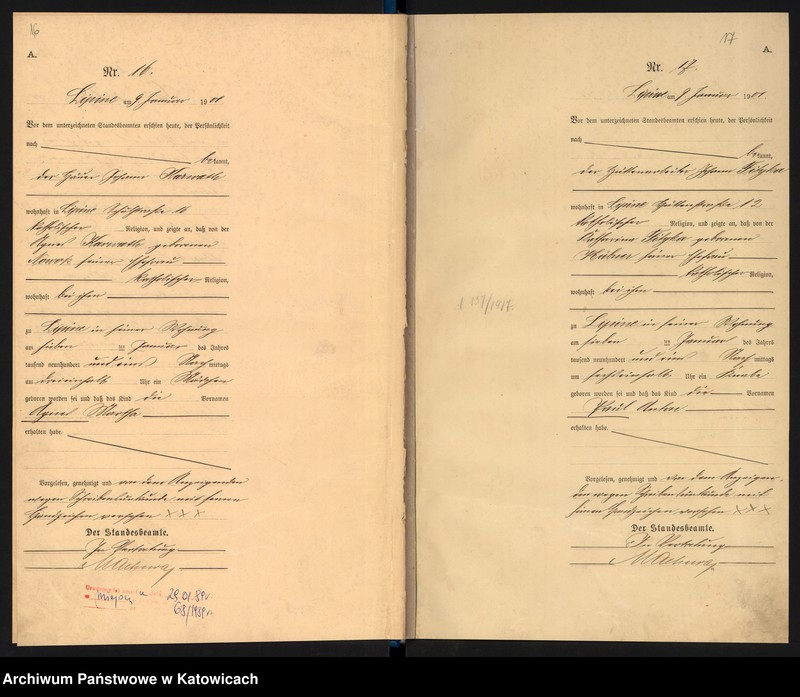 16
A.
Nr. 16.
Lipine am 9 Januar 1901
Vor dem unterzeichneten Standesbeamten erschien heute, der Persönlichkeit
nach
bekannt,
der Häuer Johann
wohnhaft in Lipine Schulstraße
katholischer Religion, und zeigte an, daß von der
Agnes geborenen
Nowok seiner Ehefrau
katholischer Religion,
wohnhaft bei ihm
zu Lipine in seiner Wohnung
am sieben ten Januar des Jahres
tausend neunhundert und eins Nachmittags
um Uhr ein Mädchen
geboren worden sei und daß das Kind die Vornamen
Agnes Martha
erhalten habe.
Vorgelesen, genehmigt und von dem Anzeigenden
wegen Schreibensunkunde mit seinem
Handzeichen versehen XXX
Der Standesbeamte.
In Vertretung
29.01.89r.
68/1989r.
17
A.
Nr. 17.
Lipine am 9 Januar 1901
Vor dem unterzeichneten Standesbeamten erschien heute, der Persönlichkeit
nach
bekannt,
der Hüttenarbeiter Johann
wohnhaft in Lipine Hüttenstraße 12
katholischer Religion, und zeigte an, daß von der
Katharina geborenen
seiner Ehefrau
katholischer Religion,
wohnhaft bei ihm
zu Lipine in seiner Wohnung
am sieben ten Januar des Jahres
tausend neunhundert und eins Nachmittags
um sechseinhalb Uhr ein Knabe
geboren worden sei und daß das Kind die Vornamen
Paul Anton
erhalten habe.
Vorgelesen, genehmigt und von dem Anzeigen-
den wegen Schreibensunkunde mit
seinem Handzeichen versehen XXX
Der Standesbeamte.
In Vertretung
Archiwum Państwowe w Katowicach